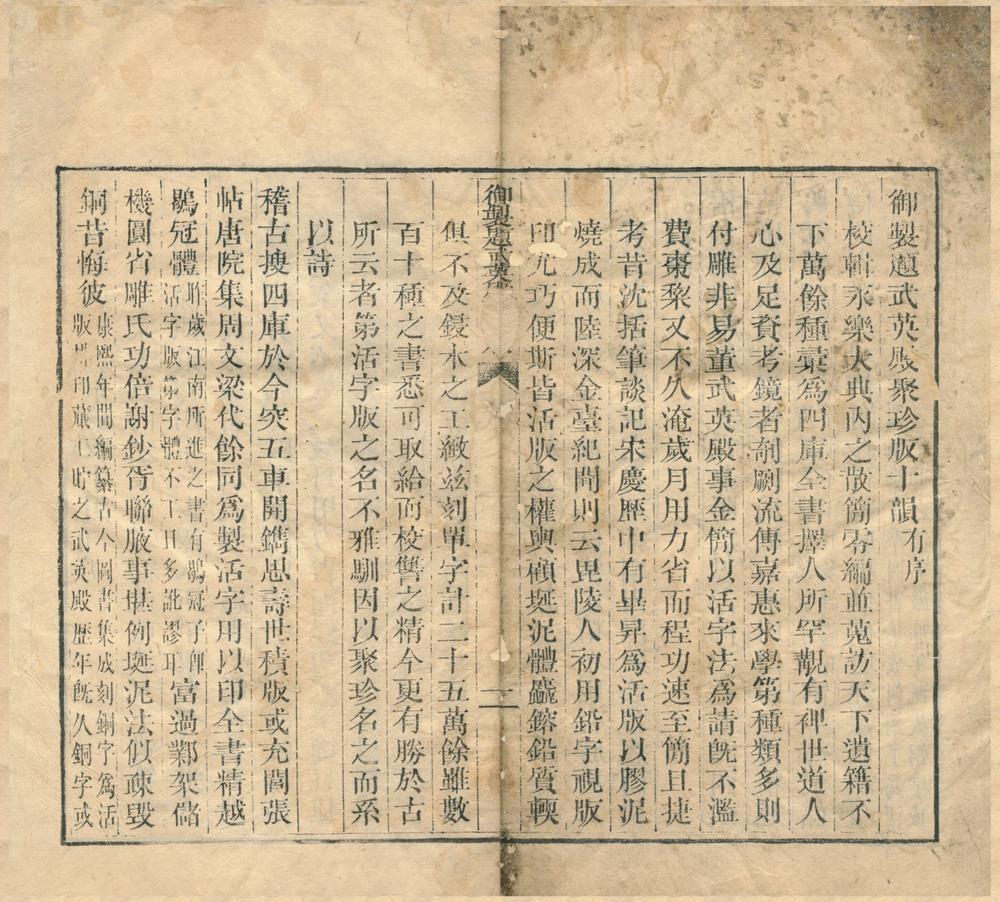 御製題武英殿聚珍版十韻有序
校輯永樂大典內之散簡零編並蒐訪天下遺籍不
下萬餘種彙爲四庫全書擇人所罕覯有裨世道人
心及足資考鏡者剞劂流傳嘉惠來學第種類多則
付雕非易董武英殿事金簡以活字法爲請旣不濫
費棗棃又不久淹歲月用力省而程功速至簡且捷
考昔沈括筆談記宋慶歷中有畢昇爲活版以膠泥
燒成而陸深金臺紀聞則云毘陵人初用鉛字視版
印尤巧便斯皆活版之權輿顧埏泥體麤鎔鉛質輭
御製題武英殿
一
俱不及鋟木之工緻兹刻單字計二十五萬餘雖數
百十種之書悉可取給而校讐之精今更有勝於古
所云者第活字版之名不雅馴因以聚珍名之而系
以詩
稽古搜四庫於今突五車開鐫思壽世積版或充閭張
帖唐院集周文梁代餘同爲製活字用以印全書精越
鶡冠體昨歲江南所進之書有鶡冠子卽
活字版第字體不工且多訛謬耳富過鄴架儲
機圓省雕氏功倍謝鈔胥聯腋事堪例埏泥法似疎毀
銅昔悔彼康熙年間編纂古今圖書集成刻銅字爲活
版排印蕆工貯之武英殿歷年旣久銅字或